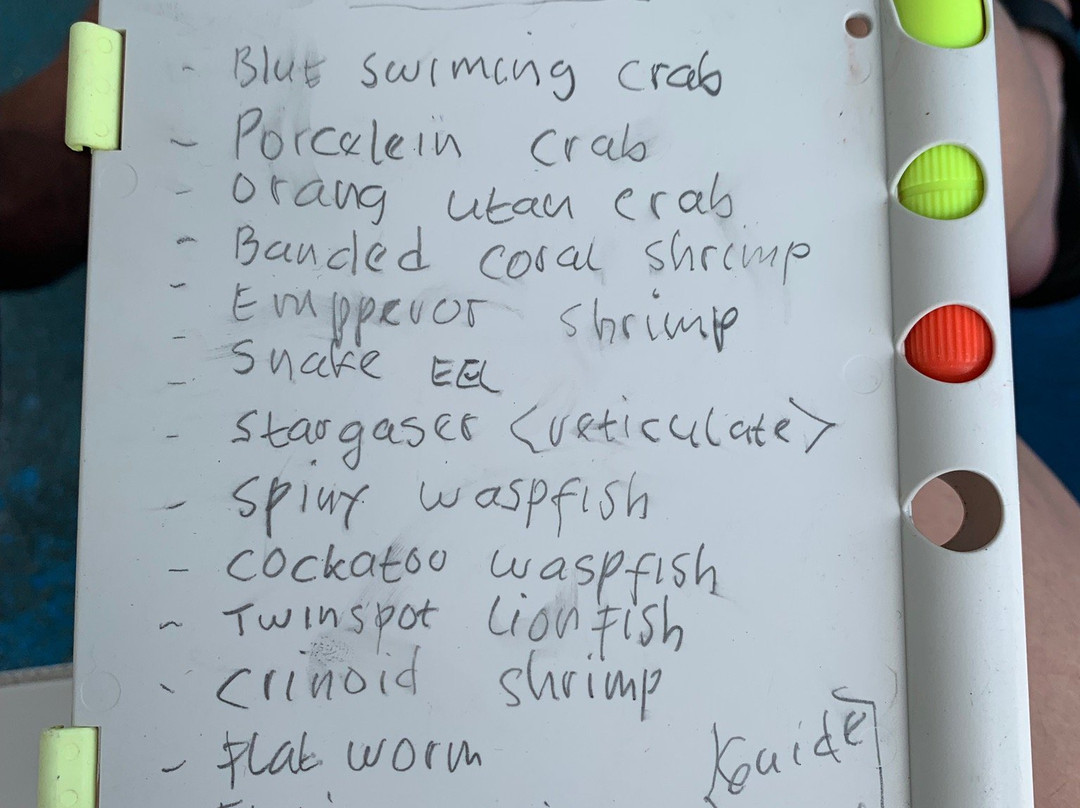 - Blue swiming crab
- Porcelein crab
- orang utan crab
- Banded coral shrimp
- Empperor shrimp
- Snake EEL
- stargaser <reticulate>
- spiny waspfish
- cockatoo waspfish
- Twinspot lionfish
- crinoid shrimp
- Flat worm
Guide